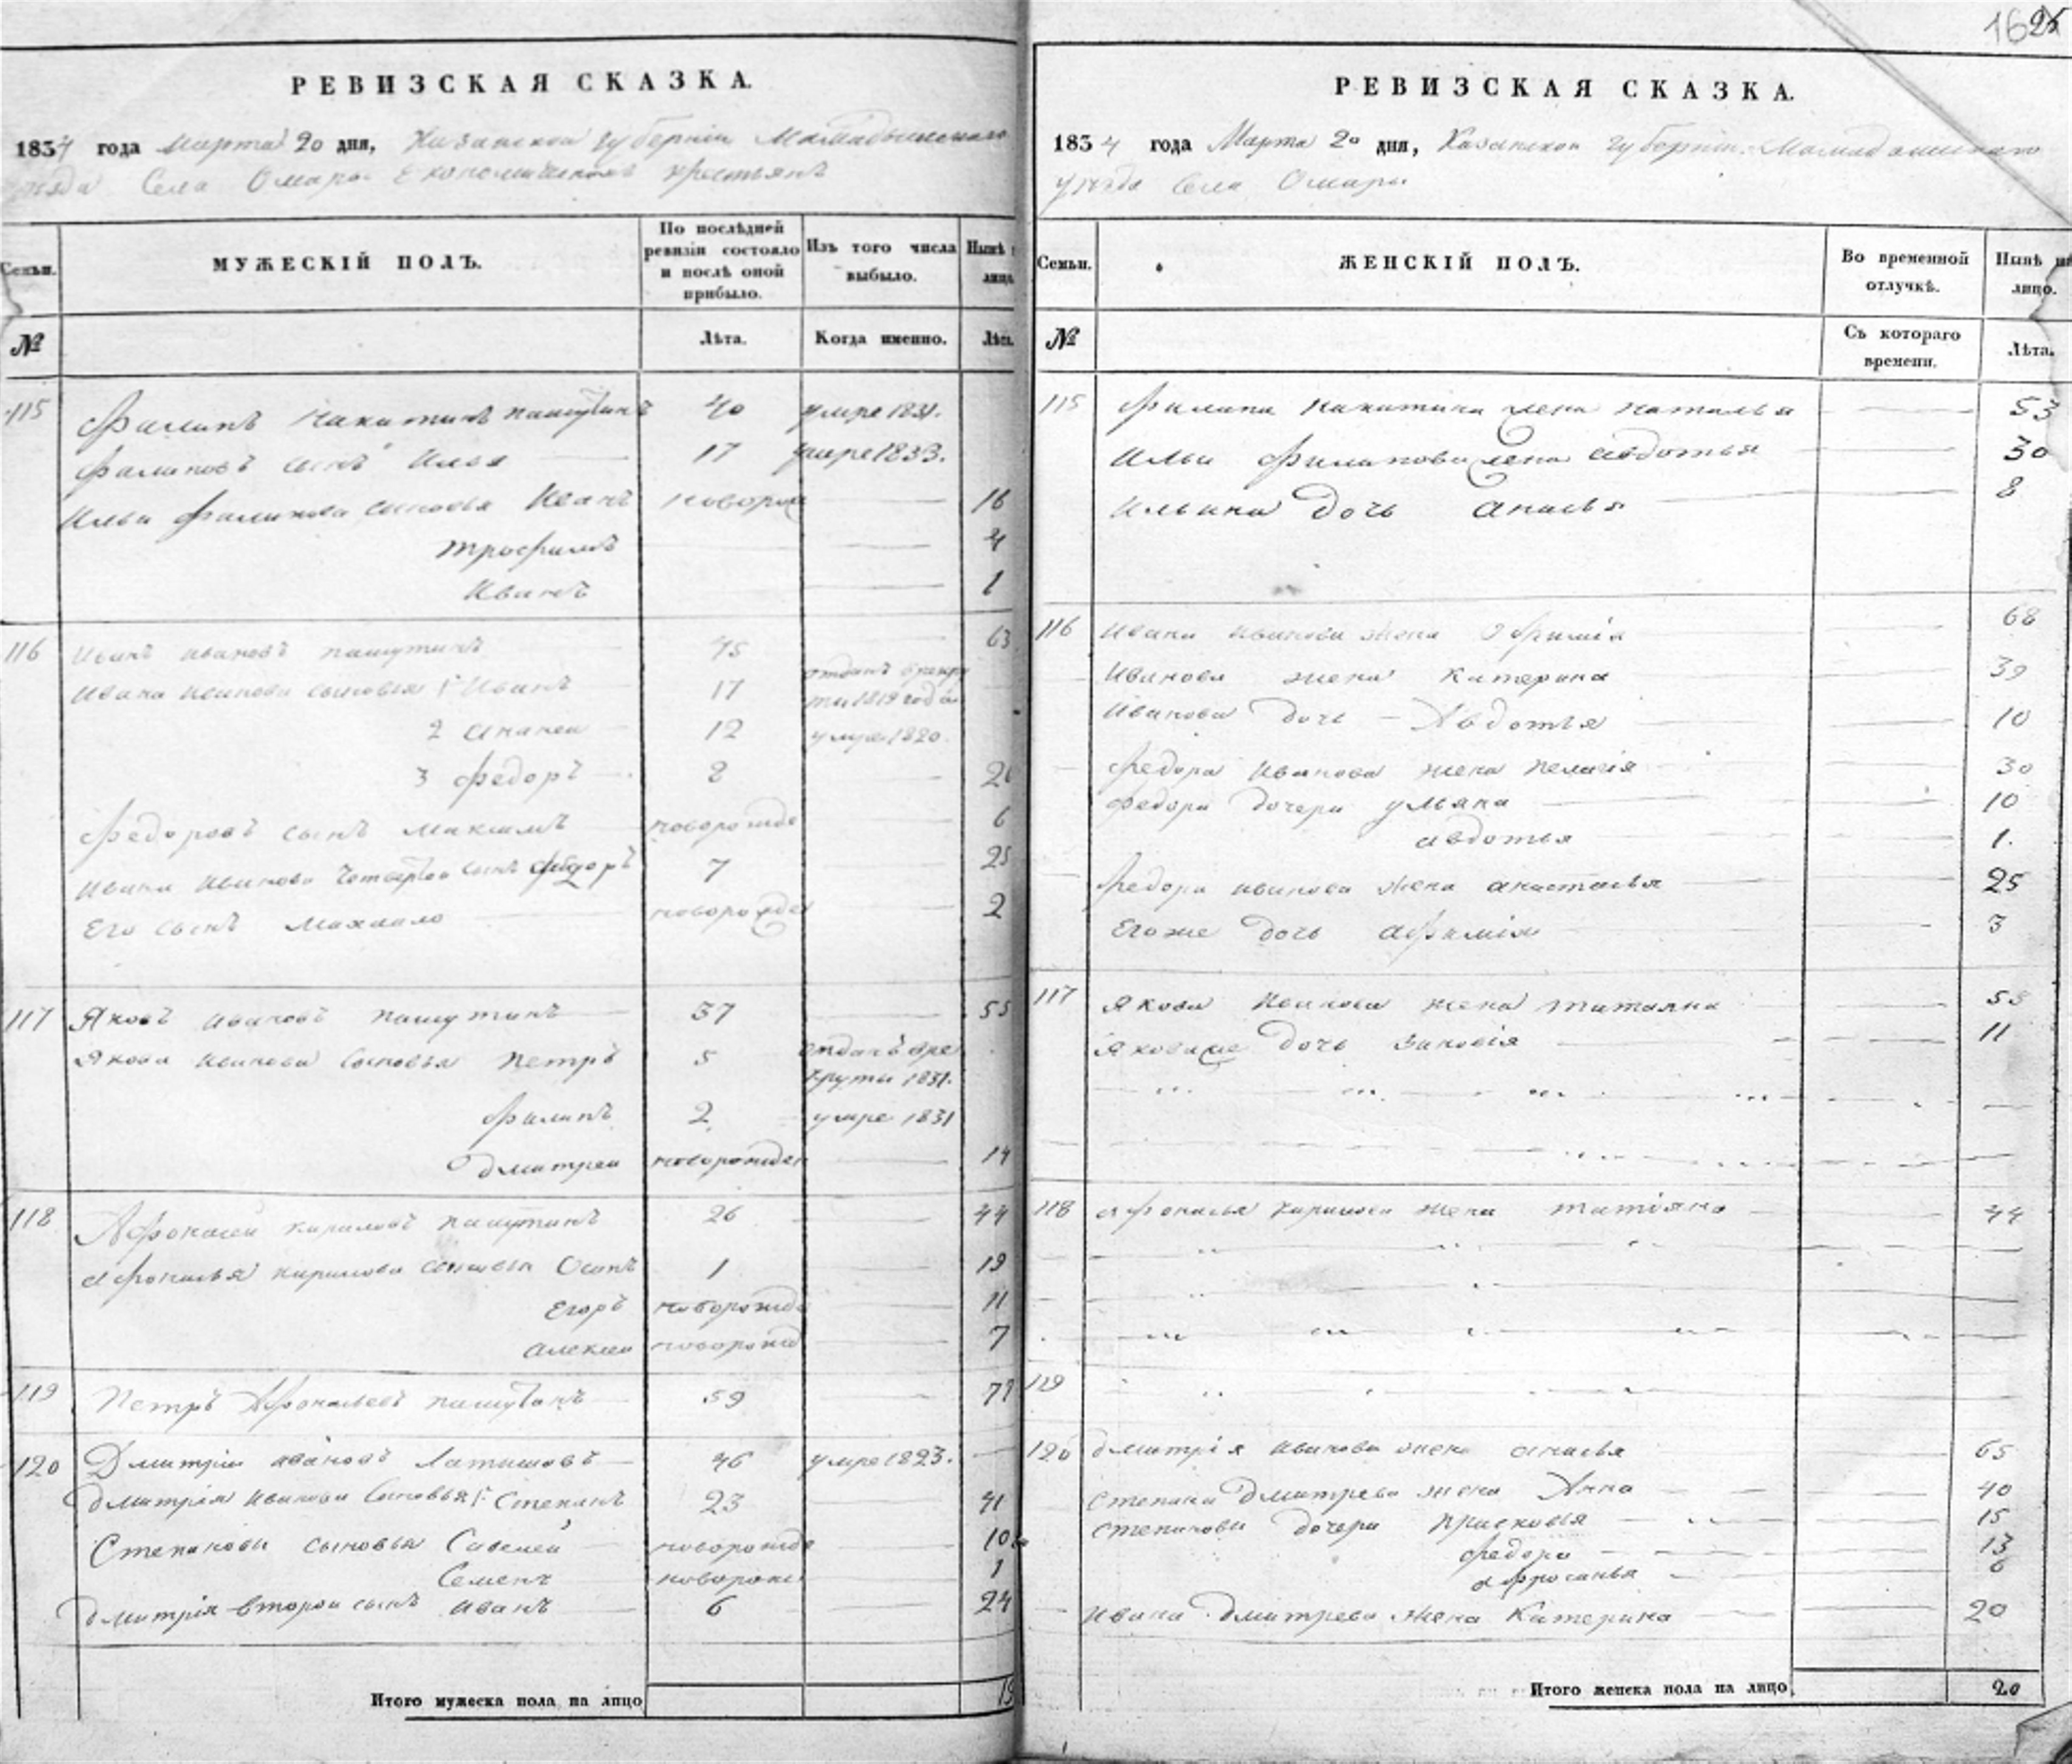 РЕВИЗСКАЯ СКАЗКА.
1834 года Марта 20 дня, Казанской губернiи Мамадышскаго
уѣзда Села Омары Економическихъ крестьянъ
Семьи.
МУЖЕСКIЙ ПОЛЪ.
По послѣдней
ревизiи состояло
и послѣ оной
прибыло.
Изъ того числа
выбыло.
Нынѣ
лицо
№
Лѣта.
Когда именно.
Лѣта.
115 Филипъ Никитинъ пашутинъ 40 умре 1831.
Филиповъ сынъ Илья 17 умре 1833.
Ильи Филипова сыновья Иванъ новорож 16
трофимъ 4
Иванъ 1
116 Иванъ ивановъ пашутинъ 45 63
Ивана иванова сыновья 1. Иванъ 17 отданъ в рекру
ты 1819 года
2 Ананеи 12 умре 1820.
3 Федоръ 2 20
Федоровъ сынъ Максимъ новорожде 6
Ивана иванова четвертои сынъ Федоръ 7 25
Его сынъ Михаило новорожден 2
117 Яковъ ивановъ пашутинъ 37 55
Якова иванова Сыновья петръ 5 отданъ вре
круты 1831.
Филипъ 2 умре 1831
дмитреи новорожден 14
118 Афонасеи кириловъ пашутинъ 26 44
Афонасья кирилова сыновья Осипъ 1 19
Егоръ новорожде 11
алексеи новорожд 7
119 Петръ Афонасьевъ пашутинъ 59 77
120 Дмитрiи ивановъ Латышовъ 46 умре 1823.
дмитрiя иванова Сыновья 1. Степанъ 23 41
Степановы сыновья Савелеи новорожде 10
Семенъ новорожд 1
дмитрiя второи сынъ иванъ 6 24
Итого мужеска пола на лицо 19
1625
РЕВИЗСКАЯ СКАЗКА.
1834 года Марта 20 дня, Казанской губернiи Мамадышскаго
уѣзда Села Омары
Семьи.
ЖЕНСКIЙ ПОЛЪ.
Во временной
отлучкѣ.
Нынѣ на
лицо.
№
Съ котораго
времени.
Лѣта.
115 Филипа никитина жена наталья 53
Ильи Филипова жена авдотья 30
Ильина дочь анисья 8
116 Ивана иванова жена Офимiя 68
Иванова жена катерина 39
Иванова дочь Авдотья 10
Федора Иванова жена пелагiя 30
Федора дочери ульяна 10
авдотья 1.
Федора иванова жена анастасья 25
Егоже дочь афимiя 3
117 Якова Иванова жена татьяна 55
Якова же дочь зиновiя 11
118 афонасья кирилова жена татiяна 44
119
120 дмитрiя иванова жена анисья 65
Степана Дмитрева жена Анна 40
Степановы дочери прасковья 15
федора 13
афросинья 6
Ивана дмитрева жена Катерина 20
Итого женска пола на лицо 20